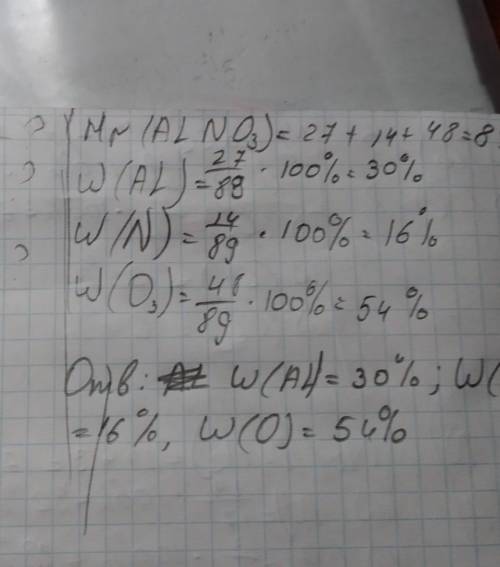 Mr (ALNO₃) = 27 + 14 + 48 = 8
W(AL) = 27/89 · 100% = 30%
W(N) = 14/89 · 100% = 16%
W(O₃) = 48/89 · 100% = 54%
Отв: W(Al) = 30%; W(
= 16%, W(O) = 54%